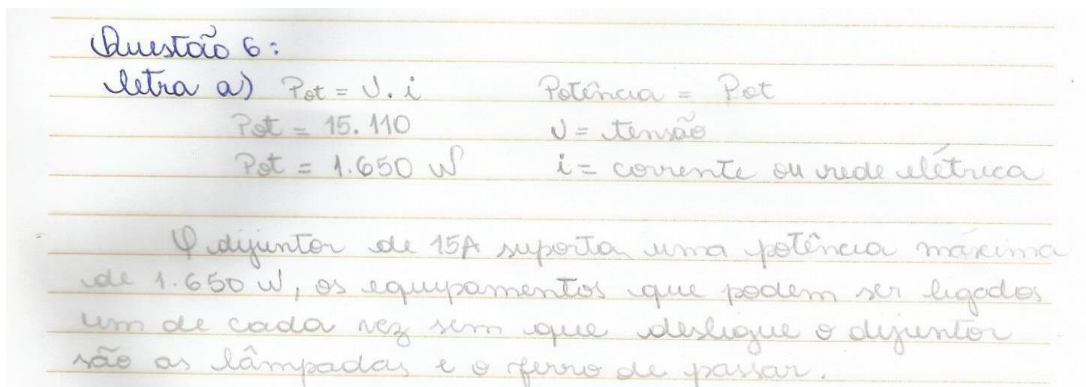 Questão 6:
letra a) Pot = U. i Potência = Pot
Pot = 15. 110 U = tensão
Pot = 1.650 W i = corrente ou rede elétrica
O dijuntor de 15A suporta uma potência máxima
de 1.650 W, os equipamentos que podem ser ligados
um de cada vez sem que desligue o dijuntor
são as lâmpadas e o ferro de passar.